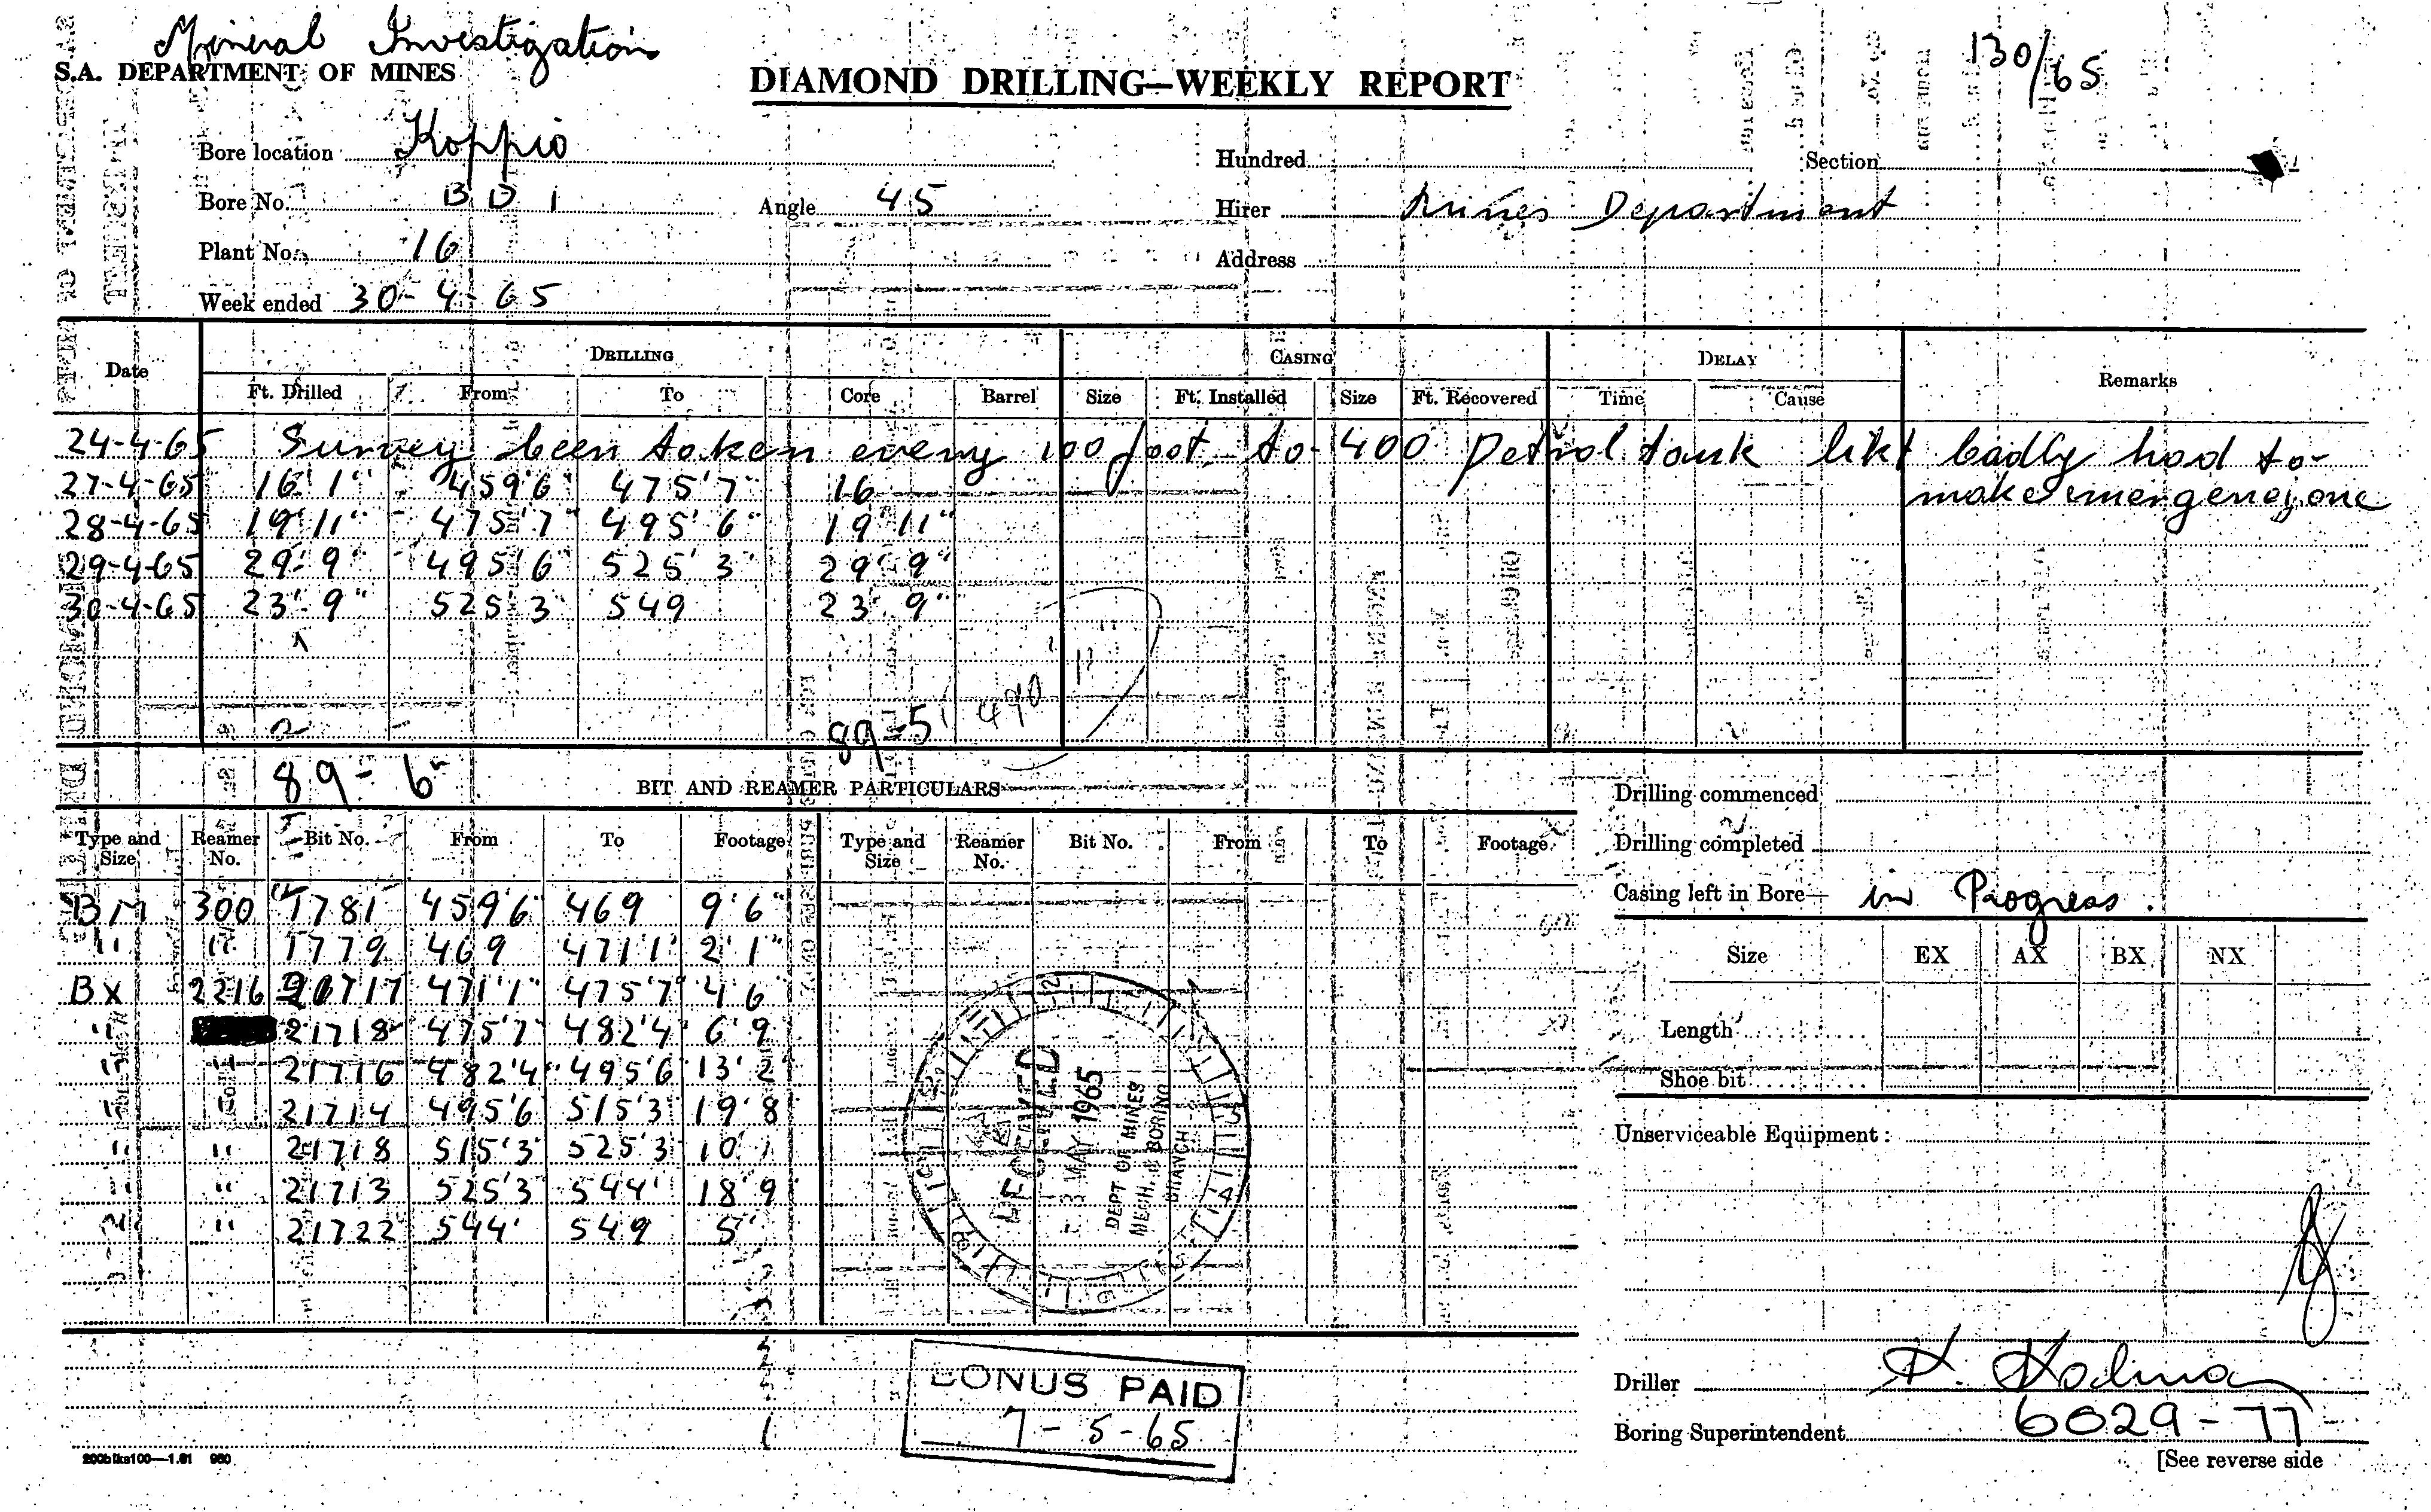 Mineral Investigation
S.A. DEPARTMENT OF MINES
DIAMOND DRILLING—WEEKLY REPORT
130/65
Bore location Koppio
Hundred Section
Bore No. BD 1 Angle 45
Hirer Mines Department
Plant No. 16
Address
Week ended 30-4-65
Date DRILLING CASING DELAY Remarks
Ft. Drilled From To Core Barrel Size Ft. Installed Size Ft. Recovered Time Cause
24-4-65 Survey been taken every 100 foot to 400 petrol tank likt badly had to
27-4-65 16' 1" 459'6" 475'7" 16 make emergency one
28-4-65 19' 11" 475'7" 495'6" 19' 11"
29-4-65 29' 9" 495'6 525'3" 29' 9"
30-4-65 23' 9" 525'3 549 23' 9"
89-5 490
89-6"
BIT AND REAMER PARTICULARS
Type and Size Reamer No. Bit No. From To Footage Type and Size Reamer No. Bit No. From To Footage
BM 300 1781 459'6" 469 9'6"
" " 1779 469 471'1" 2'1"
BX 2216 20717 471'1" 475'7" 4'6
" 21718 475'7" 482'4" 6'9
" " 21716 482'4" 495'6 13'2"
" " 21714 495'6 515'3 19'8
" " 21718 515'3 525'3 10'1
" " 21713 525'3 544' 18'9
" " 21722 544' 549 5'
Drilling commenced
Drilling completed
Casing left in Bore— in Progress.
Size EX AX BX NX
Length
Shoe bit
Unserviceable Equipment:
RECEIVED
3 MAY 1965
DEPT OF MINES
MECH. & BORING
BRANCH
BONUS PAID
7-5-65
Driller
Boring Superintendent 6029-77
200blks100—1.61 960
[See reverse side